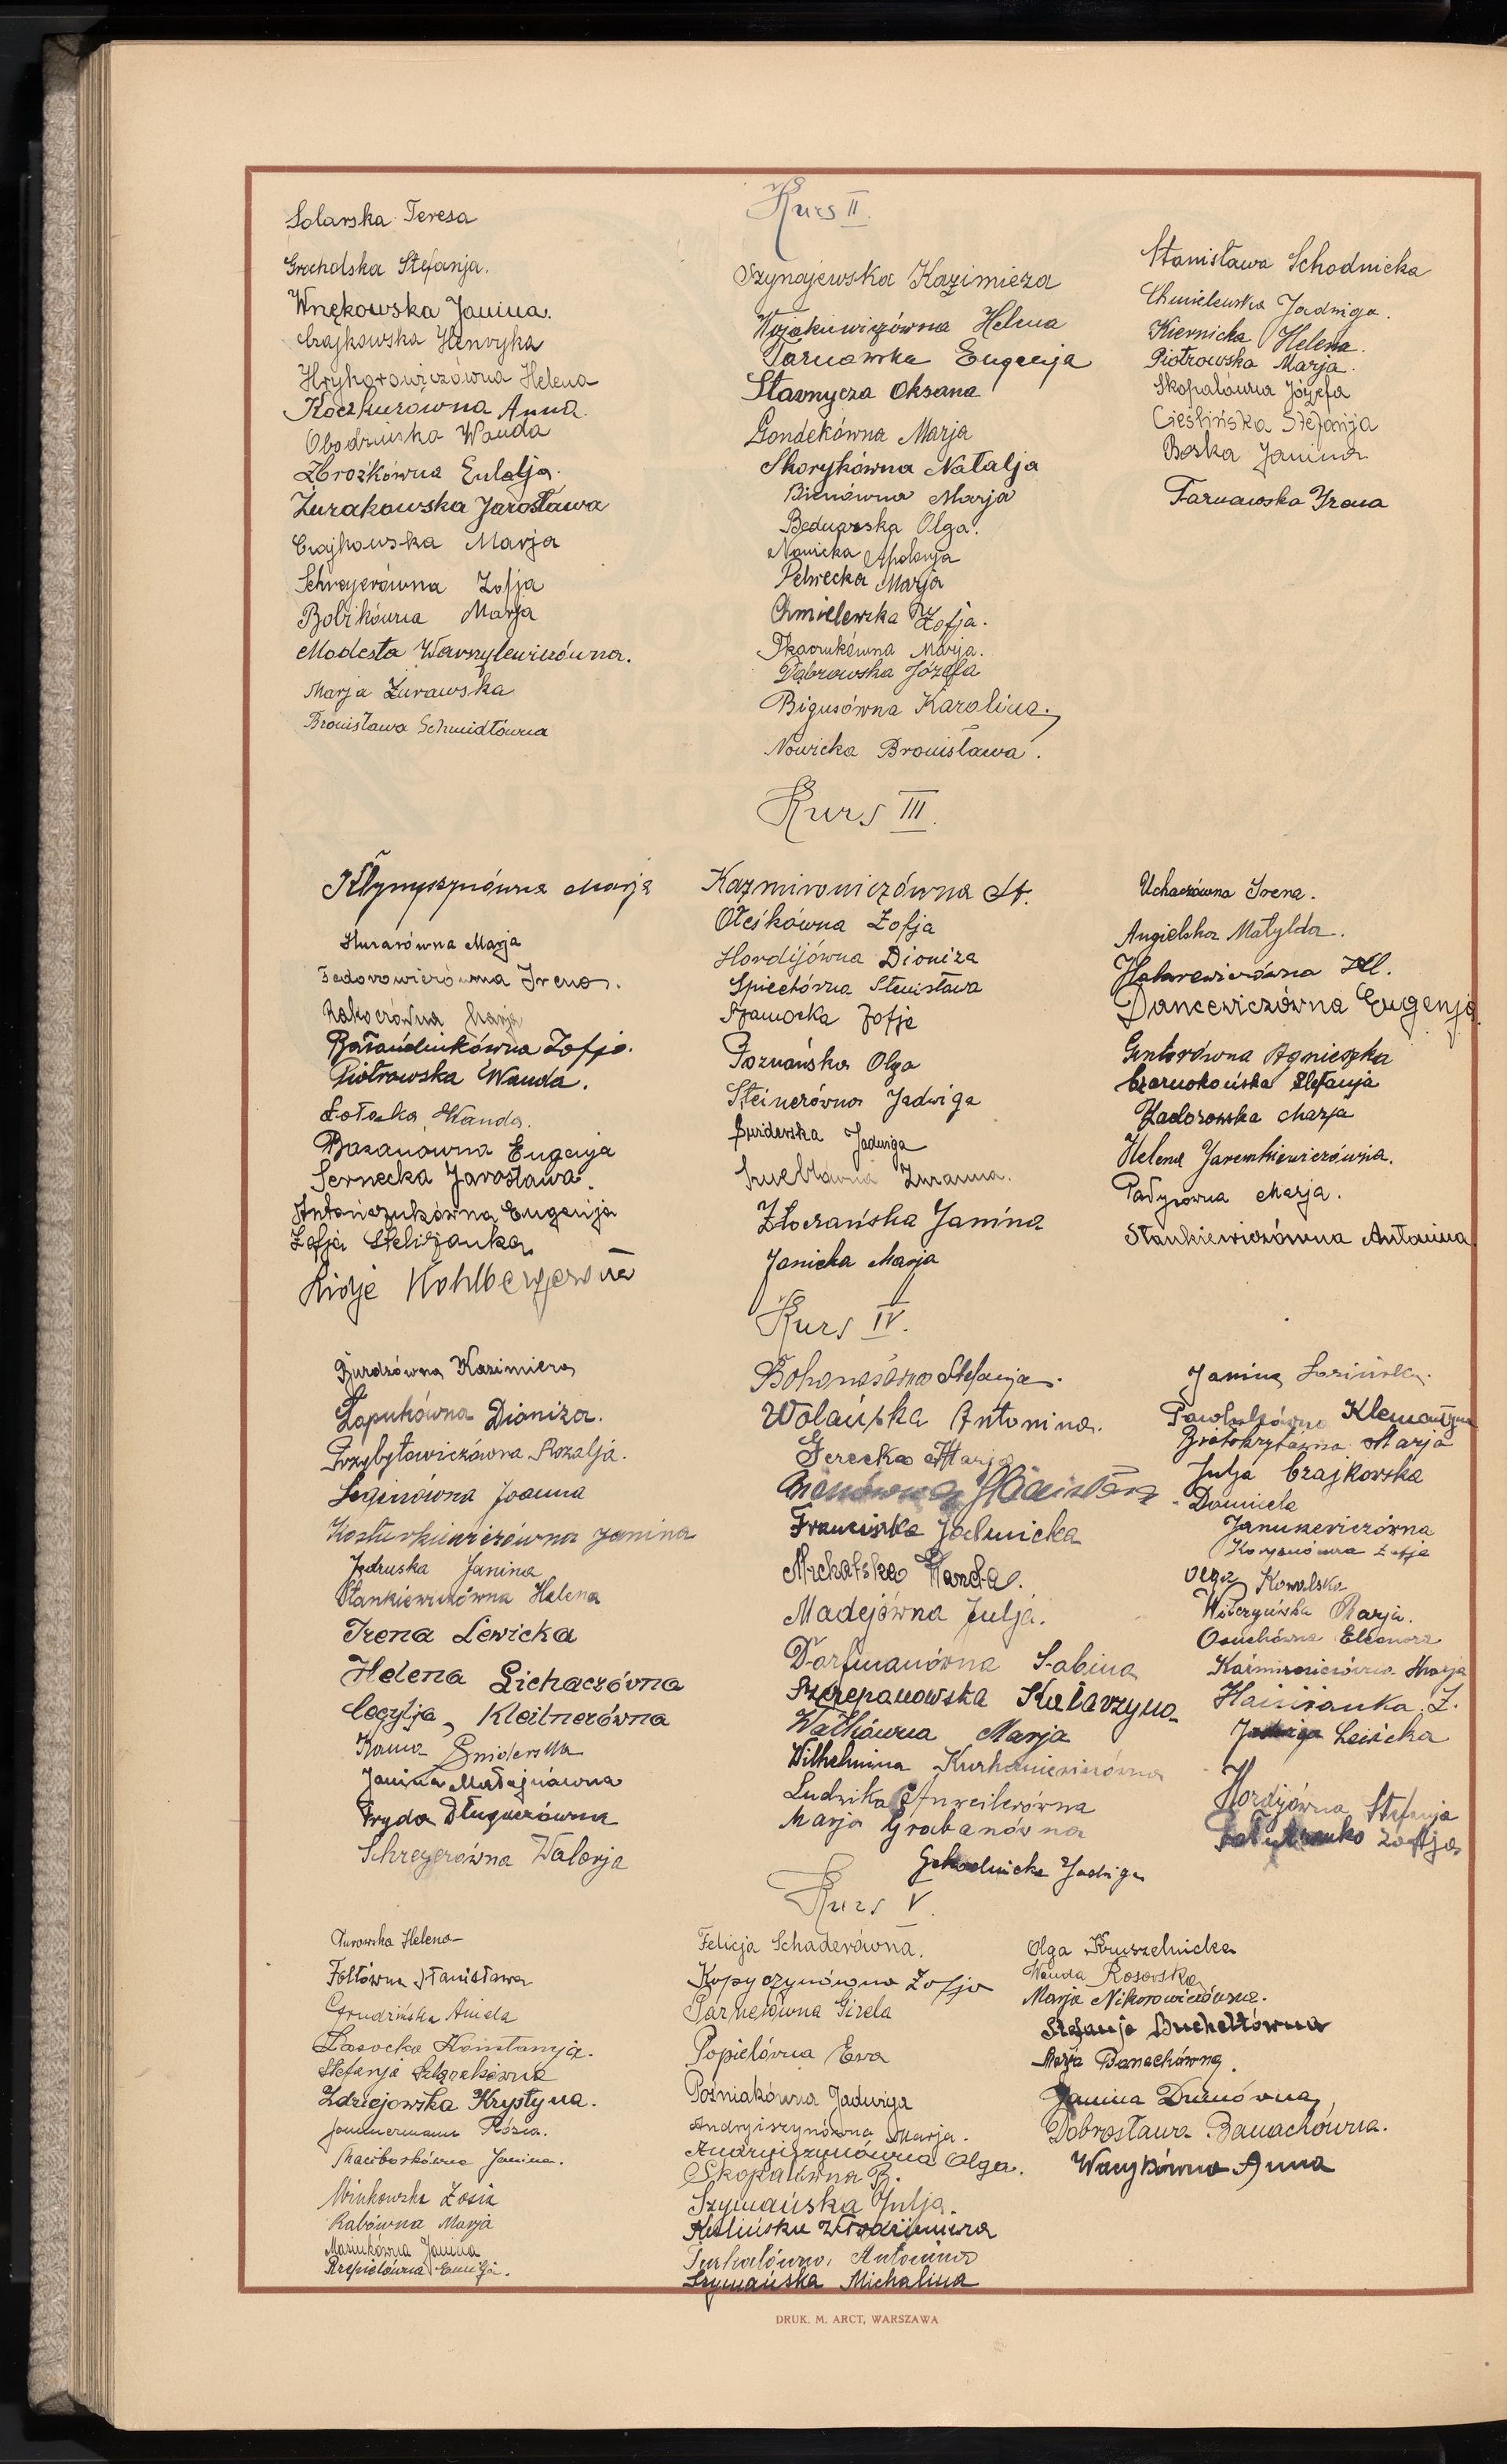 Solarska Teresa
Grocholska Stefanja.
Wnękowska Janina.
Czajkowska Henryka
Hryhorowiczówna Helena
Koczkurówna Anna
Obodzińska Wanda
Zbrożkówna Eulalja.
Żurakowska Jarosława
Czajkowska Marja
Schrayerówna Zofja
Bobikówna Marja
Modesta Wawrylewiczówna.
Marja Żurawska
Bronisława Schmidtówna
Kurs II.
Szynajewska Kazimiera
Wojakiewiczówna Helena
Tarnawska Eugenja
Stavnycza Oksana
Gondekówna Marja
Skorykówna Natalja
Bieniówna Marja
Bednarska Olga.
Nowicka Apolonja
Petrecka Marja
Chmielewska Zofja.
Tkaczukówna Marja.
Dąbrowska Józefa
Bigusówna Karolina.
Nowicka Bronisława.
Stanisława Schodnicka
Chmielewska Jadwiga.
Kiernicka Helena.
Piotrowska Marja.
Skopalówna Józefa
Cieślińska Stefanja
Boska Janina
Tarnawska Irena
Kurs III.
Marja
Huzarówna Marja
Fedorowiczówna Irena.
Zofja.
Piotrowska Wanda.
Łotocka Wanda.
Bazanówna Eugenja
Sernecka Jarosława.
Antończukówna Eugenja
Zofja
Lidje Kohlbergerówna
Kazmirowiczówna St.
Oleśkówna Zofja
Hordijówna Dioniza
Śpiechówna Stanisława
Szamocka Zofja
Poznańska Olga
Steinerówna Jadwiga
Świderska Jadwiga
Zuzanna.
Złoczańska Janina
Janicka Marja
Uchaczówna Irena.
Angielska Matylda.
Dancewiczówna Eugenja
Gintorówna Agnieszka
Czarnokońska Stefanja
Zadorowska Marja
Helena Jaremkiewiczówna.
Marja.
Stankiewiczówna Antonina
Kurs IV.
Burdzówna Kazimiera
Łapukówna Dioniza.
Przybyławiczówna Rozalja.
Joanna
Kosturkiewiczówna Janina
Jędruska Janina
Stankiewiczówna Helena
Irena Lewicka
Helena Lichaczówna
Cecylja Kleitnerówna
Śniderska
Janina Matejnówna
Fryda Długaczówna
Schreyerówna Walerja
Stefanja.
Wolańska Antonina.
Gerecka Marja
Franciszka Jalnicka
Michalska Wanda.
Madejówna Julja.
Dorfmanówna Sabina
Szczepanowska Katarzyna
Walkówna Marja
Wilhelmina Kurhaniewiczówna
Ludwika
Marja Grabanówna
Schodnicka Jadwiga
Janina Łozińska.
Pawlukówna Klementyna
Marja
Julja Czajkowska
Daniela
Janukiewiczówna
Zofja
Olga Kowalska
Marja.
Osuchówna Eleonora
Kaźmirowiczówna Marja
Z.
Jadwiga Lewicka
Hordyjówna Stefanja
Zofja
Kurs V.
Turowska Helena
Foltówna Stanisława
Grudzińska Aniela
Lasocka Konstancja.
Stefanja
Zdziejowska Krystyna.
Róża.
Maciborkówna Janina.
Minkowska Zosia
Rabówna Marja
Masiukówna Janina
Krepielówna Emilja.
Felicja Schaderówna.
Kopyczynówna Zofja
Parnesówna Gizela
Popielówna Ewa
Pośniakówna Jadwiga
Andryiszynówna Marja.
Andryiszynówna Olga.
Skopalówna B.
Szymańska Julja.
Kulińska Włodzimiera
Antonina
Szymańska Michalina
Olga Kruszelnicka
Wanda Rosowska
Marja Nikorowiczówna.
Stefanja Bucheltówna
Marja Banachówna.
Janina Dumówna
Dobrosława Banachówna.
Wacykówna Anna
DRUK. M. ARCT, WARSZAWA